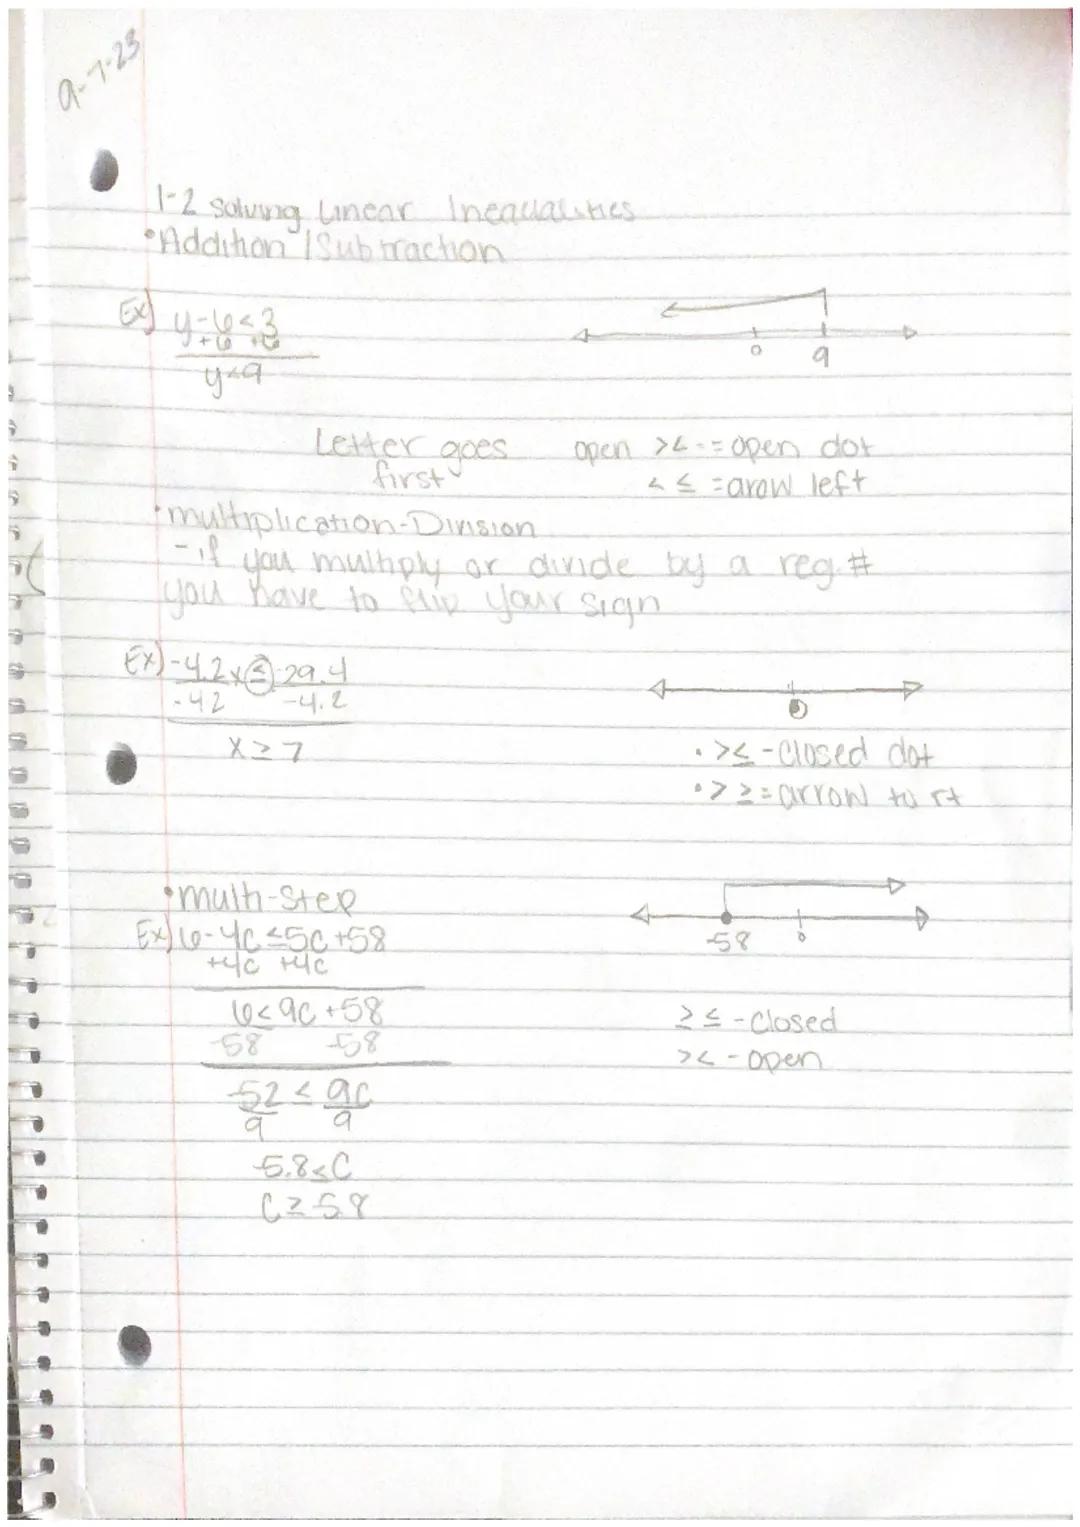 9-7-23
1-2 solving Linear Inequalities
•Addition / Subtraction
Ex) y-6<3
+6 +6
y<9
0 9
Letter goes first
open >< -= open dot
< ≤ =arow left
•multiplication-Division
-if you multiply or divide by a reg.#
you have to flip your sign
Ex) -4.2x ≤ -29.4
-4.2 -4.2
x ≥ 7
0
• >≤ -closed dot
• > ≥ = arrow to rt
•multi-step
Ex) 6-4c ≤5c+58
+4c +4c
-58 0
6≤9c+58
-58 -58
≥≤ -closed
>< -open
-52 ≤ 9c
9 9
-5.8≤C
C≥-5.8